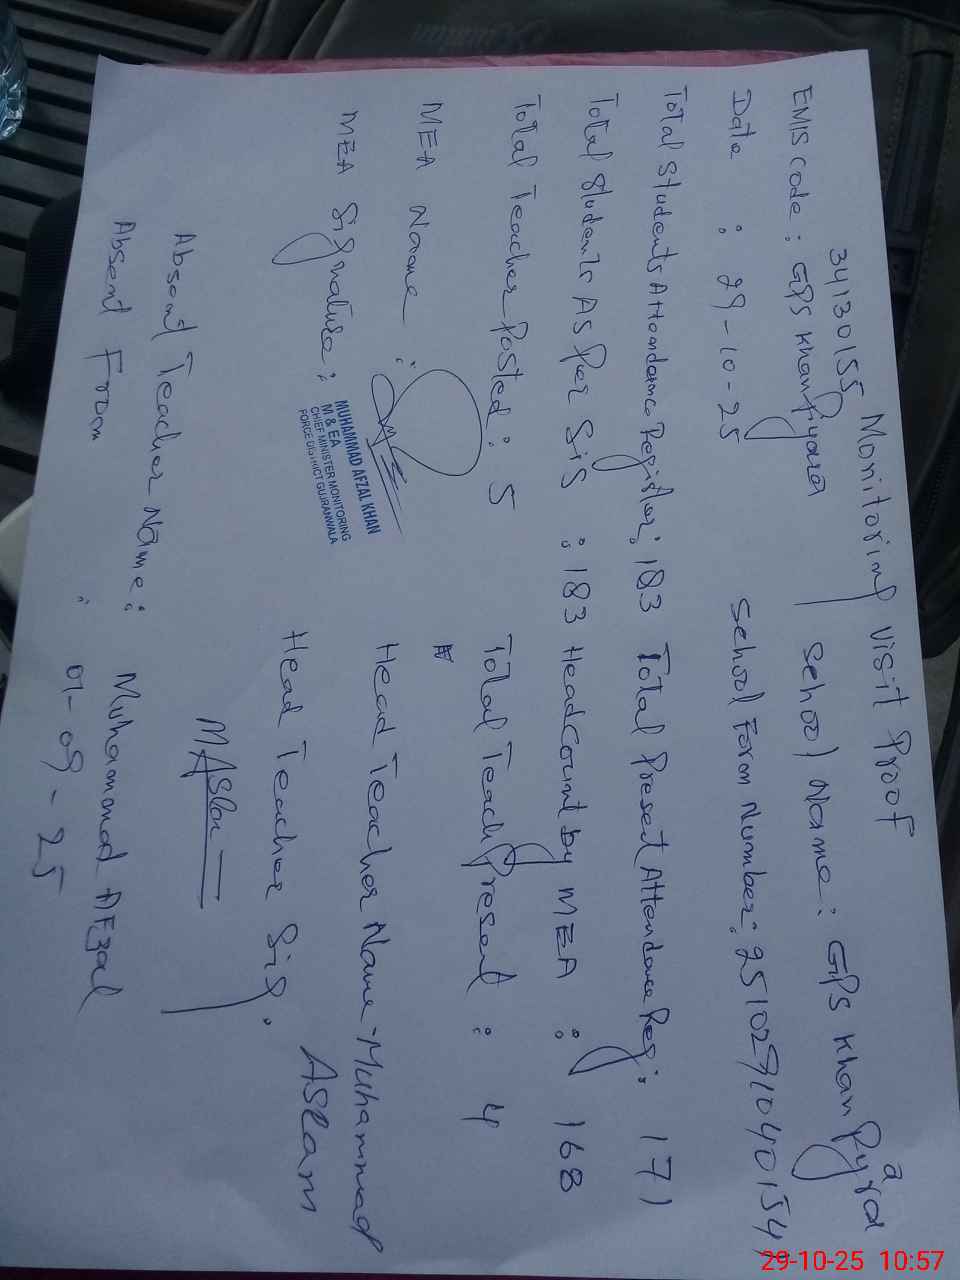 Monitoring Visit Proof
34130155
EMIS Code : GPS Khan Pyara School Name : GPS Khan Pyara
Date : 29-10-25 School Form Number : 251029104040154
Total Students Attendance Register : 183 Total Present Attendance Reg : 171
Total Students As Per SiS : 183 Head Count by MEA : 168
Total Teacher Posted : 5 Total Teach Present : 4
MEA Name : Head Teacher Name - Muhammad Aslam
MEA Signature : Head Teacher Sig.
MUHAMMAD AFZAL KHAN
M & EA
CHIEF MINISTER MONITORING
FORCE DISTRICT GUJRANWALA
MAslam
Absent Teacher Name : Muhammad Afzal
Absent From : 01-09-25
29-10-25 10:57